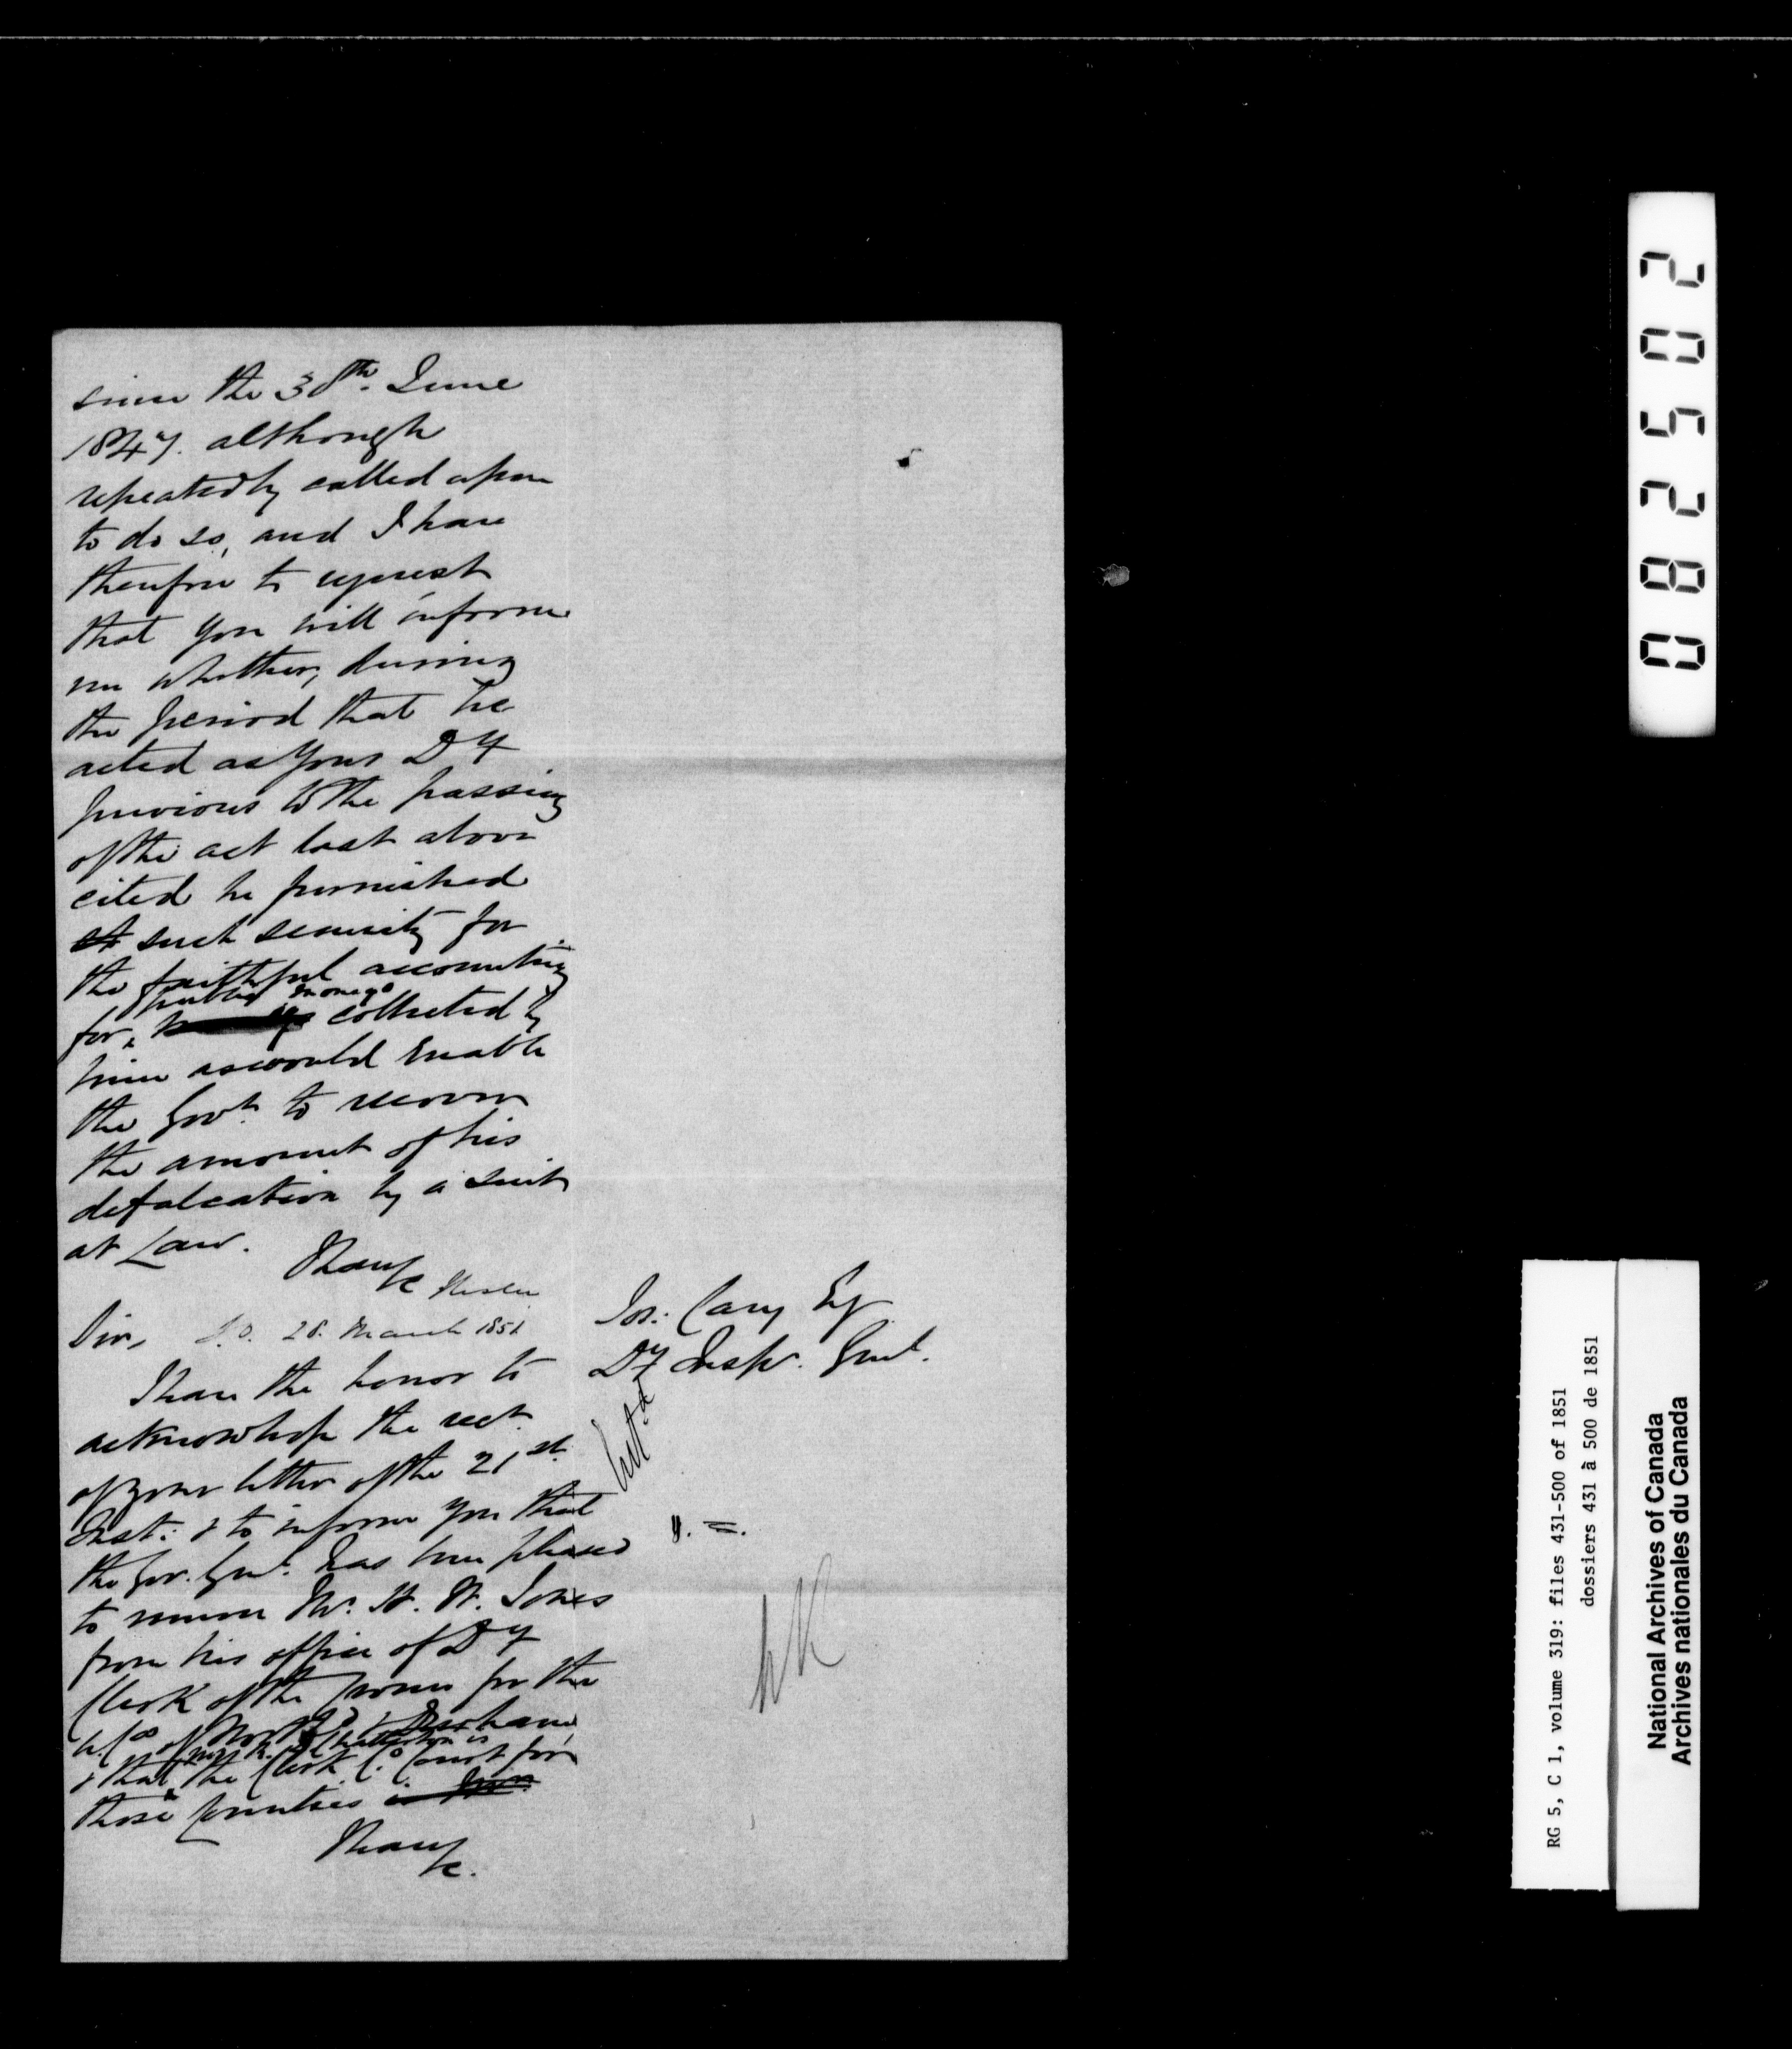 since the 30th. June
1847. although
repeatedly called upon
to do so, and I have
therefore to request
that you will inform
me whether, during
the period that he
acted as your Dy
previous to the passing
of the act last above
cited he furnished
such security for
the faithful accounting
public moneys
for, collected by
him as would enable
the Govt. to recover
the amount of his
defalcation by a suit
at Law.
I have &c
Sir, S.O. 28. March 1851
I have the honor to
acknowledge the rect.
of your letter of the 21st.
Inst: & to inform you that
the Gov. Genl. has been pleased
to remove Mr. H. W. Jones
from his office of Dy
Clerk of the Crown for the
U. Cos of Northd & Durham
& that the Clerk C. Court for
those Counties
I have &c.
Jos: Cary Esq
Dy Inspr. Genl.
0 8 2 5 0 2
RG 5, C 1, volume 319: files 431-500 of 1851
dossiers 431 à 500 de 1851
National Archives of Canada
Archives nationales du Canada